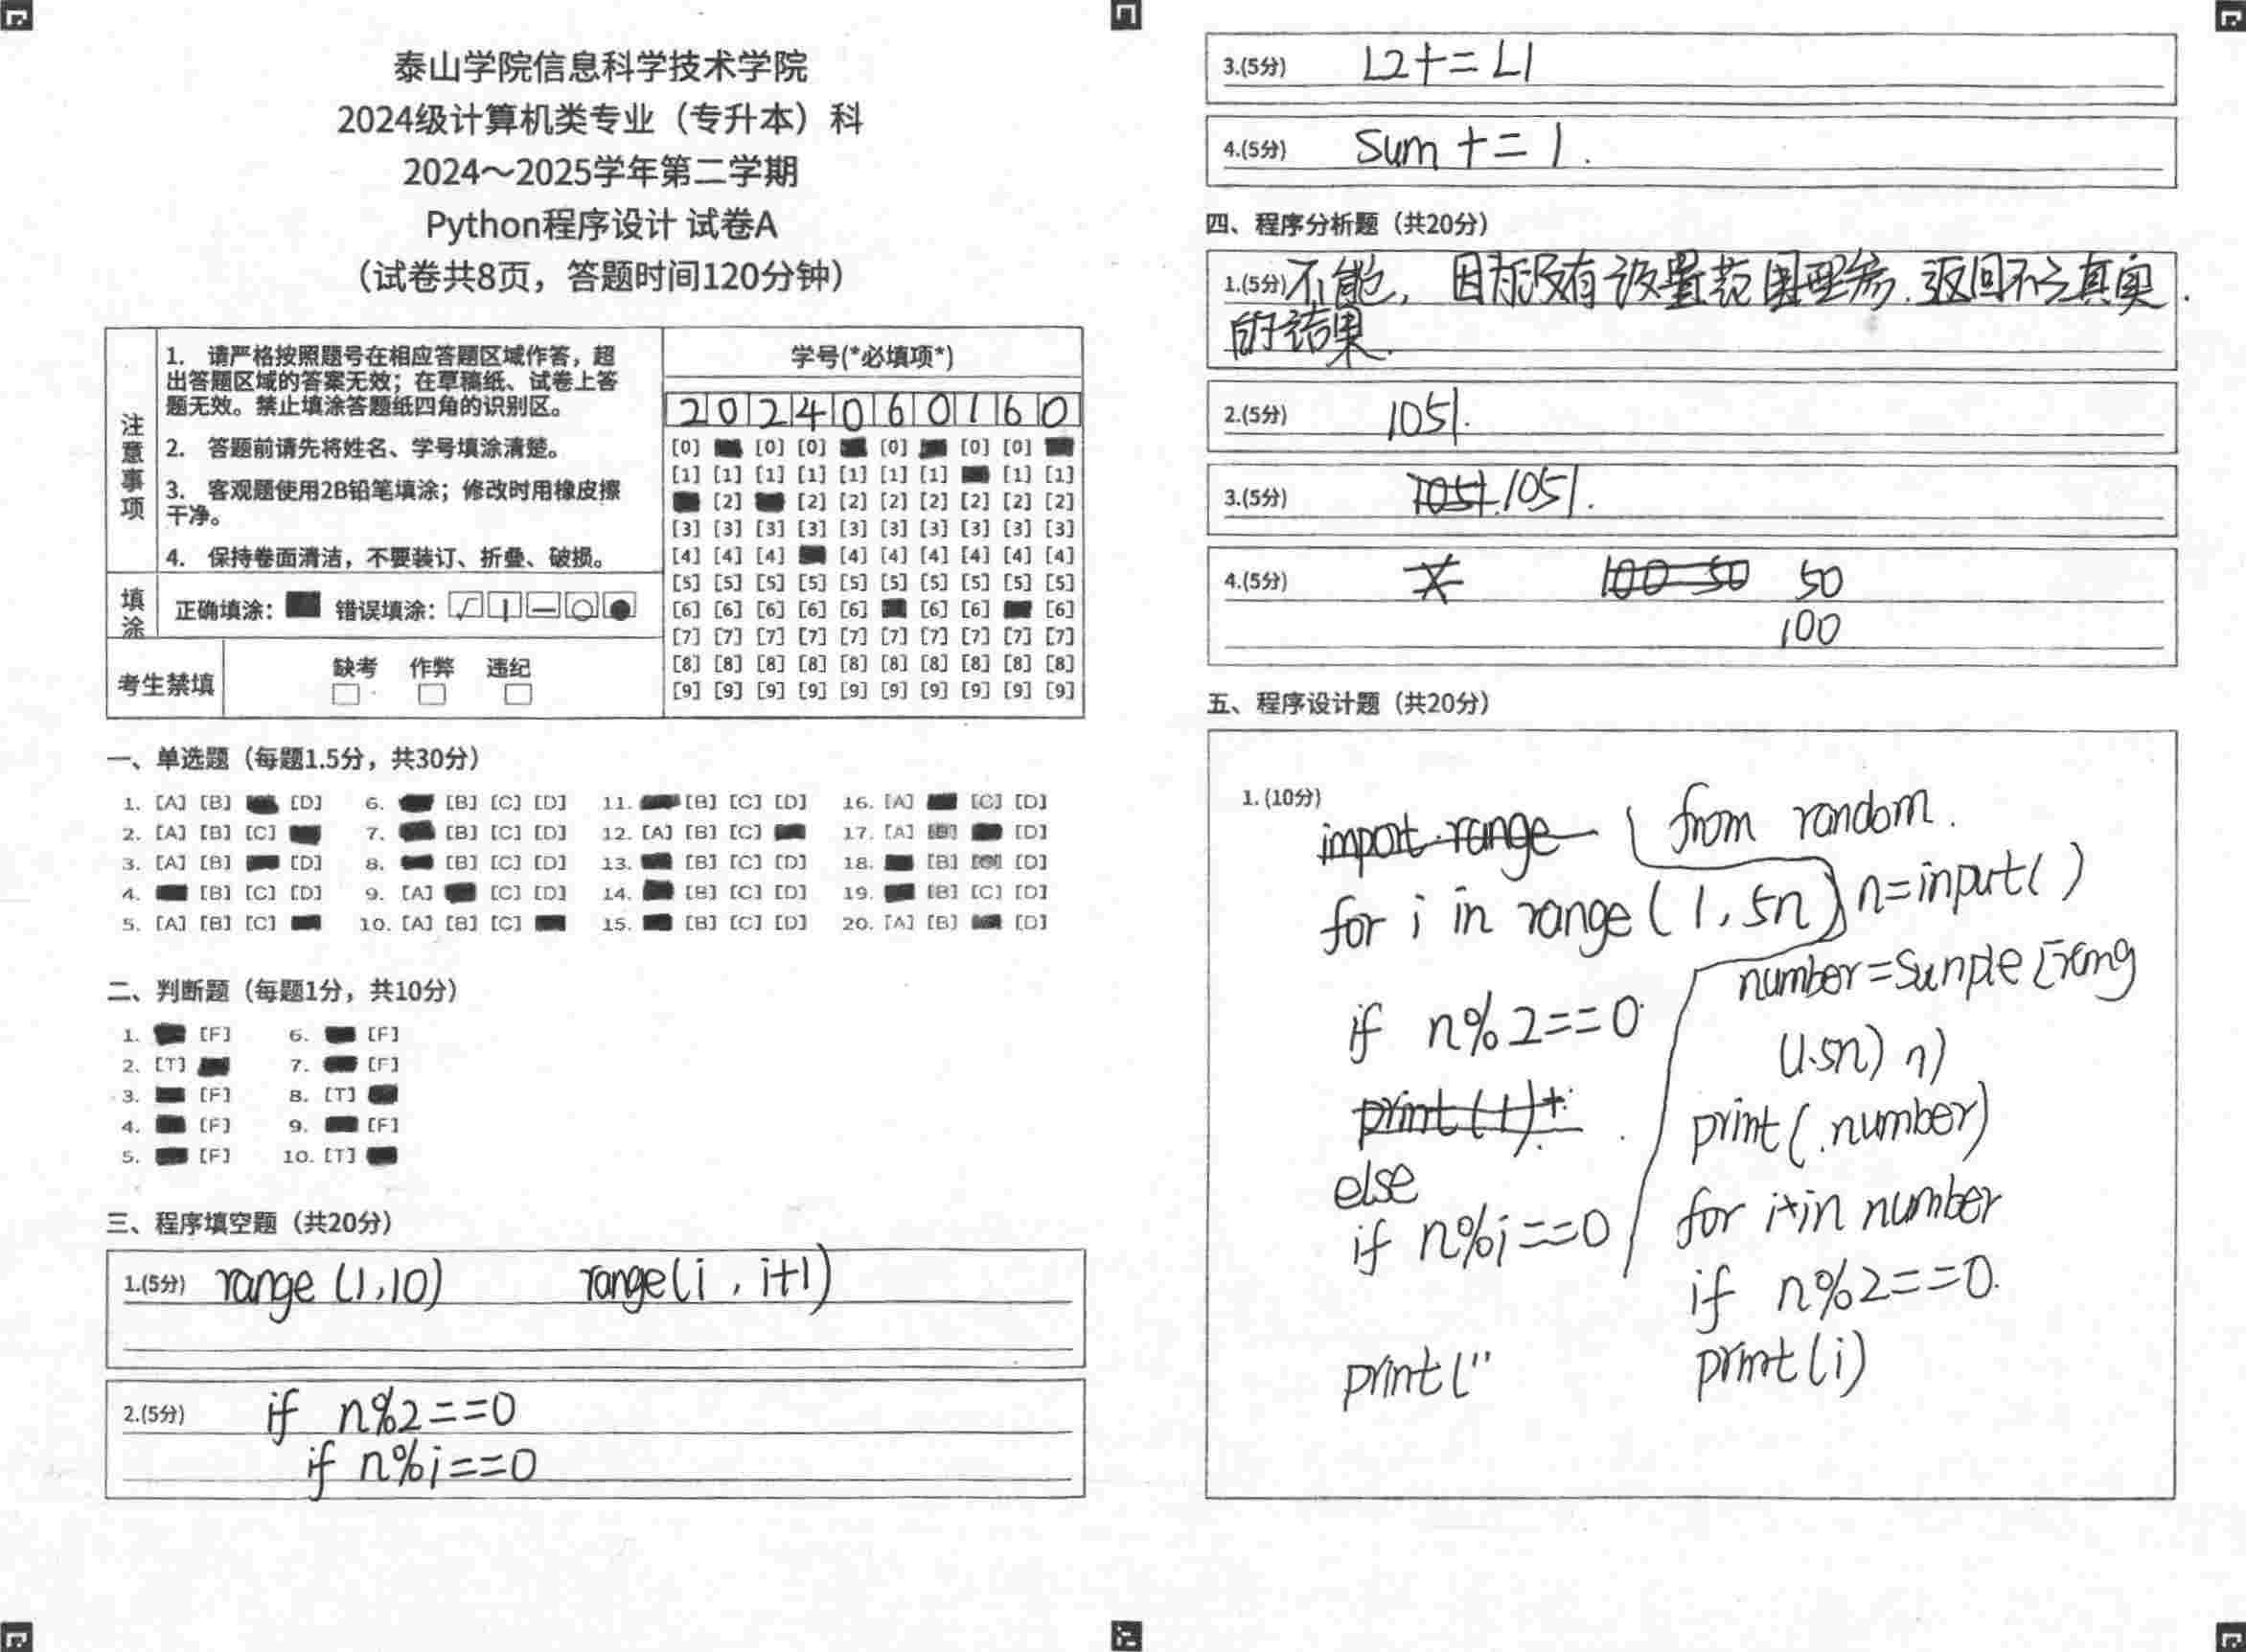 泰山学院信息科学技术学院
2024级计算机类专业（专升本）科
2024～2025学年第二学期
Python程序设计 试卷A
（试卷共8页，答题时间120分钟）
注意事项
1. 请严格按照题号在相应答题区域作答，超
出答题区域的答案无效；在草稿纸、试卷上答
题无效。禁止填涂答题纸四角的识别区。
2. 答题前请先将姓名、学号填涂清楚。
3. 客观题使用2B铅笔填涂；修改时用橡皮擦
干净。
4. 保持卷面清洁，不要装订、折叠、破损。
填涂
正确填涂： 错误填涂：
考生禁填
缺考 作弊 违纪
学号(*必填项*)
2024060160
[0] [0] [0] [0] [0] [0]
[1] [1] [1] [1] [1] [1] [1] [1] [1]
[2] [2] [2] [2] [2] [2] [2] [2]
[3] [3] [3] [3] [3] [3] [3] [3] [3] [3]
[4] [4] [4] [4] [4] [4] [4] [4] [4]
[5] [5] [5] [5] [5] [5] [5] [5] [5] [5]
[6] [6] [6] [6] [6] [6] [6] [6]
[7] [7] [7] [7] [7] [7] [7] [7] [7] [7]
[8] [8] [8] [8] [8] [8] [8] [8] [8] [8]
[9] [9] [9] [9] [9] [9] [9] [9] [9] [9]
一、单选题（每题1.5分，共30分）
1. [A] [B] [D] 6. [B] [C] [D] 11. [B] [C] [D] 16. [A] [C] [D]
2. [A] [B] [C] 7. [B] [C] [D] 12. [A] [B] [C] 17. [A] [B] [D]
3. [A] [B] [D] 8. [B] [C] [D] 13. [B] [C] [D] 18. [B] [C] [D]
4. [B] [C] [D] 9. [A] [C] [D] 14. [B] [C] [D] 19. [B] [C] [D]
5. [A] [B] [C] 10. [A] [B] [C] 15. [B] [C] [D] 20. [A] [B] [D]
二、判断题（每题1分，共10分）
1. [F] 6. [F]
2. [T] 7. [F]
3. [F] 8. [T]
4. [F] 9. [F]
5. [F] 10. [T]
三、程序填空题（共20分）
1.(5分) range (1,10) range(i , i+1)
2.(5分) if n%2==0
if n%i==0
3.(5分) L2+=L1
4.(5分) sum +=1.
四、程序分析题（共20分）
1.(5分) 不能，因为没有设置范围型参.返回不了真实.
的结果.
2.(5分) 1051.
3.(5分) 1051. 1051.
4.(5分) 100 50 50
100
五、程序设计题（共20分）
1. (10分)
import range
for i in range(1,5n)
if n%2==0
print(1)+
else
if n%i==0
print("
from random.
n=input( )
number=Sunple[rang
(1.5n) n)
print(.number)
for i in number
if n%2==0.
print(i)